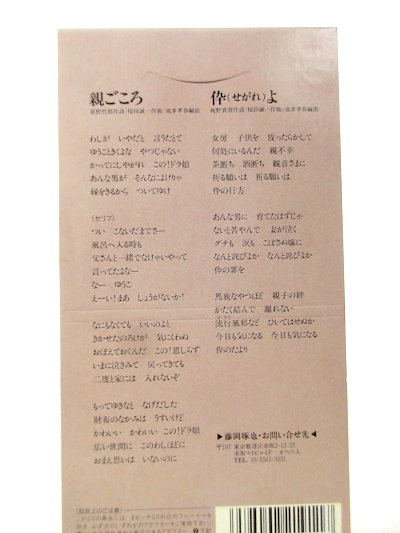 親ごころ
星野哲郎作詩/桜田誠一作曲/池多孝春編曲
わしが いやだと 言うたとて
ゆうこときくよな やつじゃない
かってにしやがれ この!ドラ娘
あんな男が そんなによけりゃ
縁をきるから ついてゆけ
(セリフ)
つい こないだまでさー
風呂へ入る時も
父さんと一緒でなけゃいやって
言ってたよなー
なー ゆうこ
えーい!まあ しょうがないか!
なにもなくても いいのよと
きかせたのろけが 気にくわぬ
おぼえておくんだ この!恩しらず
いまに泣きみて 戻ってきても
二度と家には 入れないぞ
もってゆきなと なげだした
財布のなかみは うすいけど
かわいい かわいい この!ドラ娘
広い世間に このわしほどに
おまえ思いは いないのに
伜(せがれ)よ
女房 子供を 放ったらかして
何処にいるんだ 親不幸
茶断ち 酒断ち 観音さまに
祈る願いは 祈る願いは
伜の行方
あんな男に 育てたはずじゃ
ないと苦やんで 妻が泣く
グチも 涙も こぼさぬ嫁に
なんと詫びよか なんと詫びよか
伜の罪を
馬鹿なやつほど 親子の絆
かたく結んで 離れない
流行風邪など ひいてはせぬか
今日も気になる 今日も気になる
伜のたより
▶藤岡琢也・お問い合せ先◀
〒107 東京都港区赤坂